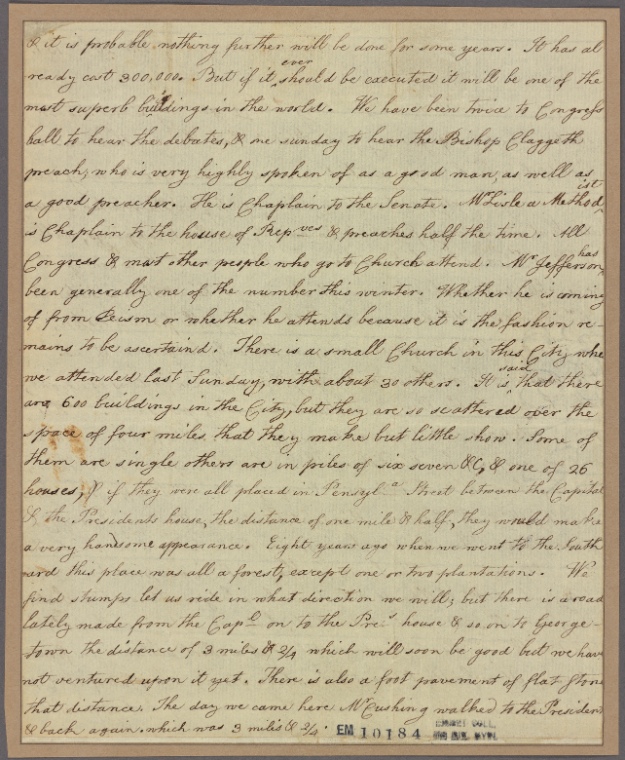 & it is probable nothing further will be done for some years. It has al
ready cost 300,000. But if it ever should be executed it will be one of the
most superb buildings in the world. We have been twice to Congress
hall to hear the debates, & one sunday to hear the Bishop Claggeth
preach, who is very highly spoken of as a good man, as well as
a good preacher. He is Chaplain to the Senate. Mr Lisle a Methodist
is Chaplain to the house of Repves & preaches half the time. All
Congress & most other people who go to Church attend. Mr Jefferson has
been generally one of the number this winter. Whether he is coming
of from Deism or whether he attends because it is the fashion re-
mains to be ascertaind. There is a small Church in this City whe
we attended last Sunday, with about 30 others. It is said that there
are 600 buildings in the City, but they are so scattered over the
space of four miles that they make but little show. Some of
them are single others are in piles of six seven &c, & one of 26
houses, if they were all placed in Pensyla Street between the Capital
& the Presidents house, the distance of one mile & half, they would make
a very handsome appearance. Eight years ago when we went to the South
ward this place was all a forest, except one or two plantations. We
find stumps let us ride in what direction we will; but there is a road
lately made from the Capl on to the Pres house & so on to George-
town the distance of 3 miles & 3/4 which will soon be good but we have
not ventured upon it yet. There is also a foot pavement of flat stone
that distance. The day we came here Mr Cushing walked to the President
& back again. which was 3 miles & 3/4.
EM 10184
EMMET COLL.